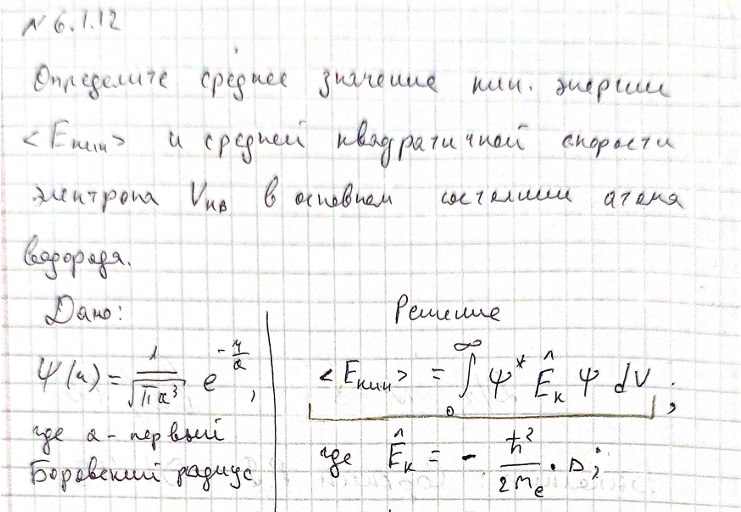 N 6.1.12
Определите среднее значение кин. энергии
<Eкин> и средней квадратичной скорости
электрона Vкв в основном состоянии атома
водорода.
Дано:
Решение
ψ(r) = 1/√(πa³) e^(-r/a),
где a - первый
Боровский радиус
<Eкин> = ∫₀^∞ ψ* Êк ψ dV ;
где Êк = - ħ²/2mₑ · Δ;